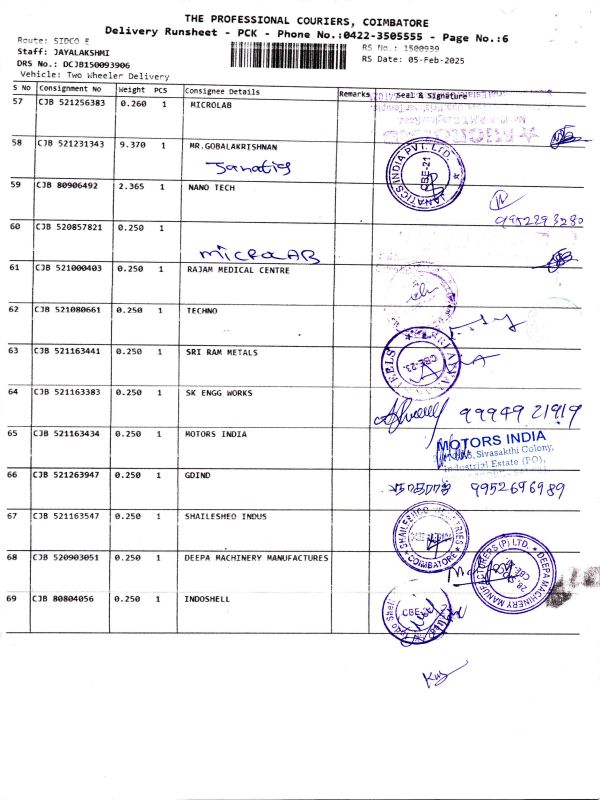 THE PROFESSIONAL COURIERS, COIMBATORE
Delivery Runsheet - PCK - Phone No.:0422-3505555 - Page No.:6
Route: SIDCO E
Staff: JAYALAKSHMI
DRS No.: DCJB150093906
Vehicle: Two Wheeler Delivery
RS No.: 1500939
RS Date: 05-Feb-2025
S No Consignment No Weight PCS Consignee Details Remarks Seal & Signature
57 CJB 521256383 0.260 1 MICROLAB
58 CJB 521231343 9.370 1 MR.GOBALAKRISHNAN
Janatics
JANATICS INDIA PVT. LTD.
CBE-21
59 CJB 80906492 2.365 1 NANO TECH
9952293280
60 CJB 520857821 0.250 1
microLAB
61 CJB 521000403 0.250 1 RAJAM MEDICAL CENTRE
62 CJB 521080661 0.250 1 TECHNO
63 CJB 521163441 0.250 1 SRI RAM METALS
CBE-23.
64 CJB 521163383 0.250 1 SK ENGG WORKS
99949 21919
65 CJB 521163434 0.250 1 MOTORS INDIA
MOTORS INDIA
Sivasakthi Colony,
Industrial Estate (PO),
66 CJB 521263947 0.250 1 GDIND
9952696989
67 CJB 521163547 0.250 1 SHAILESHEO INDUS
SHAILESHCO INDUSTRIES
COIMBATORE
68 CJB 520903051 0.250 1 DEEPA MACHINERY MANUFACTURES
DEEPA MACHINERY MANUFACTURERS (P) LTD.
69 CJB 80804056 0.250 1 INDOSHELL